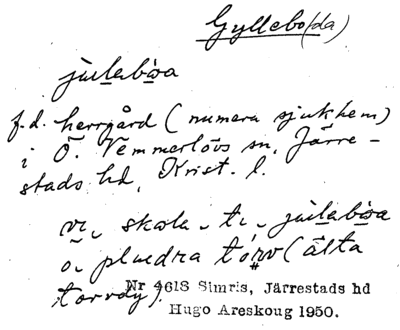 Gyllebo(da)
juileboa
f.d. herrgård (numera sjukhem)
i Ö. Vemmerlövs sn, Järre-
stads hd, Krist. l.
vi skola ti
o pluedra tórv (älta
torvdy).
Nr 4618 Simris, Järrestads hd
Hugo Areskoug 1950.